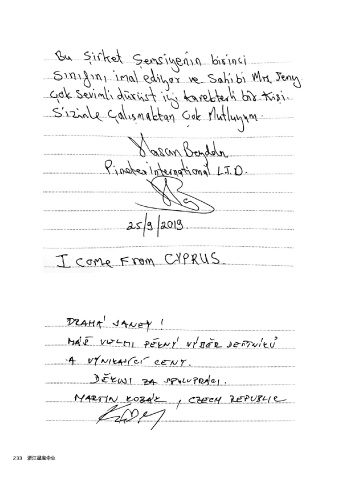 Bu Şirket Şemsiyenin birinci
Sınıfını imal ediyor ve Sahibi Mrs Jeny
Çok Sevimli dürüst iyi karekterli bir Kişi.
Sizinle Çalışmaktan Çok Mutluyum.
Hasan
International LTD.
25/9/2019
I come From CYPRUS.
DRAHÁ JANEY!
MÁŠ VELMI PĚKNÝ VÝBĚR DEŠTNÍKŮ
A VYNIKAJÍCÍ CENY.
DĚKUJI ZA SPOLUPRÁCI.
MARTIN KOZÁK, CZECH REPUBLIC
233